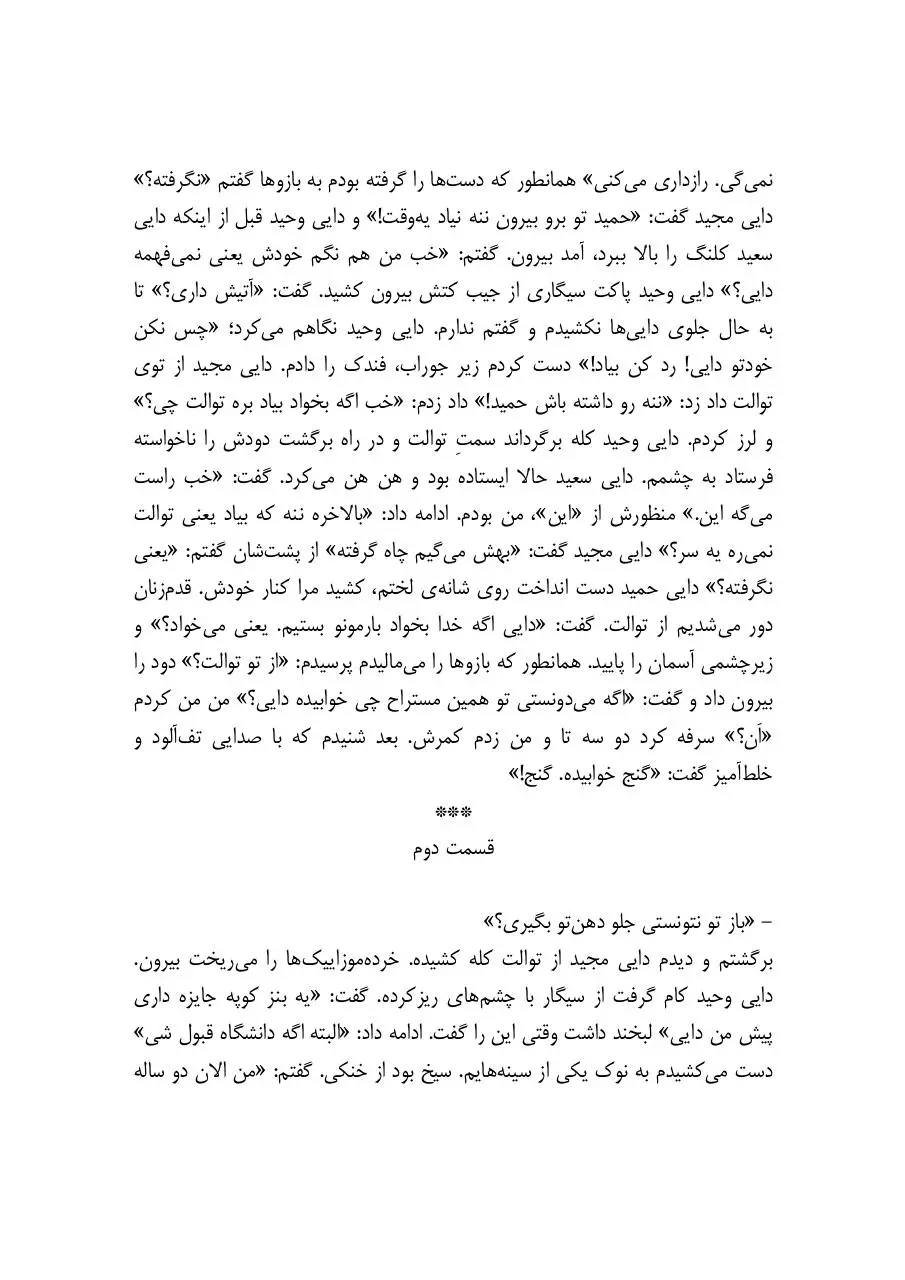 نمی‌گی. رازداری می‌کنی» همانطور که دست‌ها را گرفته بودم به بازوها گفتم «نگرفته؟»
دایی مجید گفت: «حمید تو برو بیرون ننه نیاد یه‌وقت!» و دایی وحید قبل از اینکه دایی
سعید کلنگ را بالا ببرد، آمد بیرون. گفتم: «خب من هم نگم خودش یعنی نمی‌فهمه
دایی؟» دایی وحید پاکت سیگاری از جیب کتش بیرون کشید. گفت: «آتیش داری؟» تا
به حال جلوی دایی‌ها نکشیدم و گفتم ندارم. دایی وحید نگاهم می‌کرد؛ «چس نکن
خودتو دایی! رد کن بیاد!» دست کردم زیر جوراب، فندک را دادم. دایی مجید از توی
توالت داد زد: «ننه رو داشته باش حمید!» داد زدم: «خب اگه بخواد بیاد بره توالت چی؟»
و لرز کردم. دایی وحید کله برگرداند سمتِ توالت و در راه برگشت دودش را ناخواسته
فرستاد به چشمم. دایی سعید حالا ایستاده بود و هن هن می‌کرد. گفت: «خب راست
می‌گه این.» منظورش از «این»، من بودم. ادامه داد: «بالاخره ننه که بیاد یعنی توالت
نمی‌ره یه سر؟» دایی مجید گفت: «بهش می‌گیم چاه گرفته» از پشت‌شان گفتم: «یعنی
نگرفته؟» دایی حمید دست انداخت روی شانه‌ی لختم، کشید مرا کنار خودش. قدم‌زنان
دور می‌شدیم از توالت. گفت: «دایی اگه خدا بخواد بارمونو بستیم. یعنی می‌خواد؟» و
زیرچشمی آسمان را پایید. همانطور که بازوها را می‌مالیدم پرسیدم: «از تو توالت؟» دود را
بیرون داد و گفت: «اگه می‌دونستی تو همین مستراح چی خوابیده دایی؟» من من کردم
«اَن؟» سرفه کرد دو سه تا و من زدم کمرش. بعد شنیدم که با صدایی تف‌آلود و
خلط‌آمیز گفت: «گنج خوابیده. گنج!»
***
قسمت دوم
– «باز تو نتونستی جلو دهن‌تو بگیری؟»
برگشتم و دیدم دایی مجید از توالت کله کشیده. خرده‌موزاییک‌ها را می‌ریخت بیرون.
دایی وحید کام گرفت از سیگار با چشم‌های ریزکرده. گفت: «یه بنز کوپه جایزه داری
پیش من دایی» لبخند داشت وقتی این را گفت. ادامه داد: «البته اگه دانشگاه قبول شی»
دست می‌کشیدم به نوک یکی از سینه‌هایم. سیخ بود از خنکی. گفتم: «من الان دو ساله